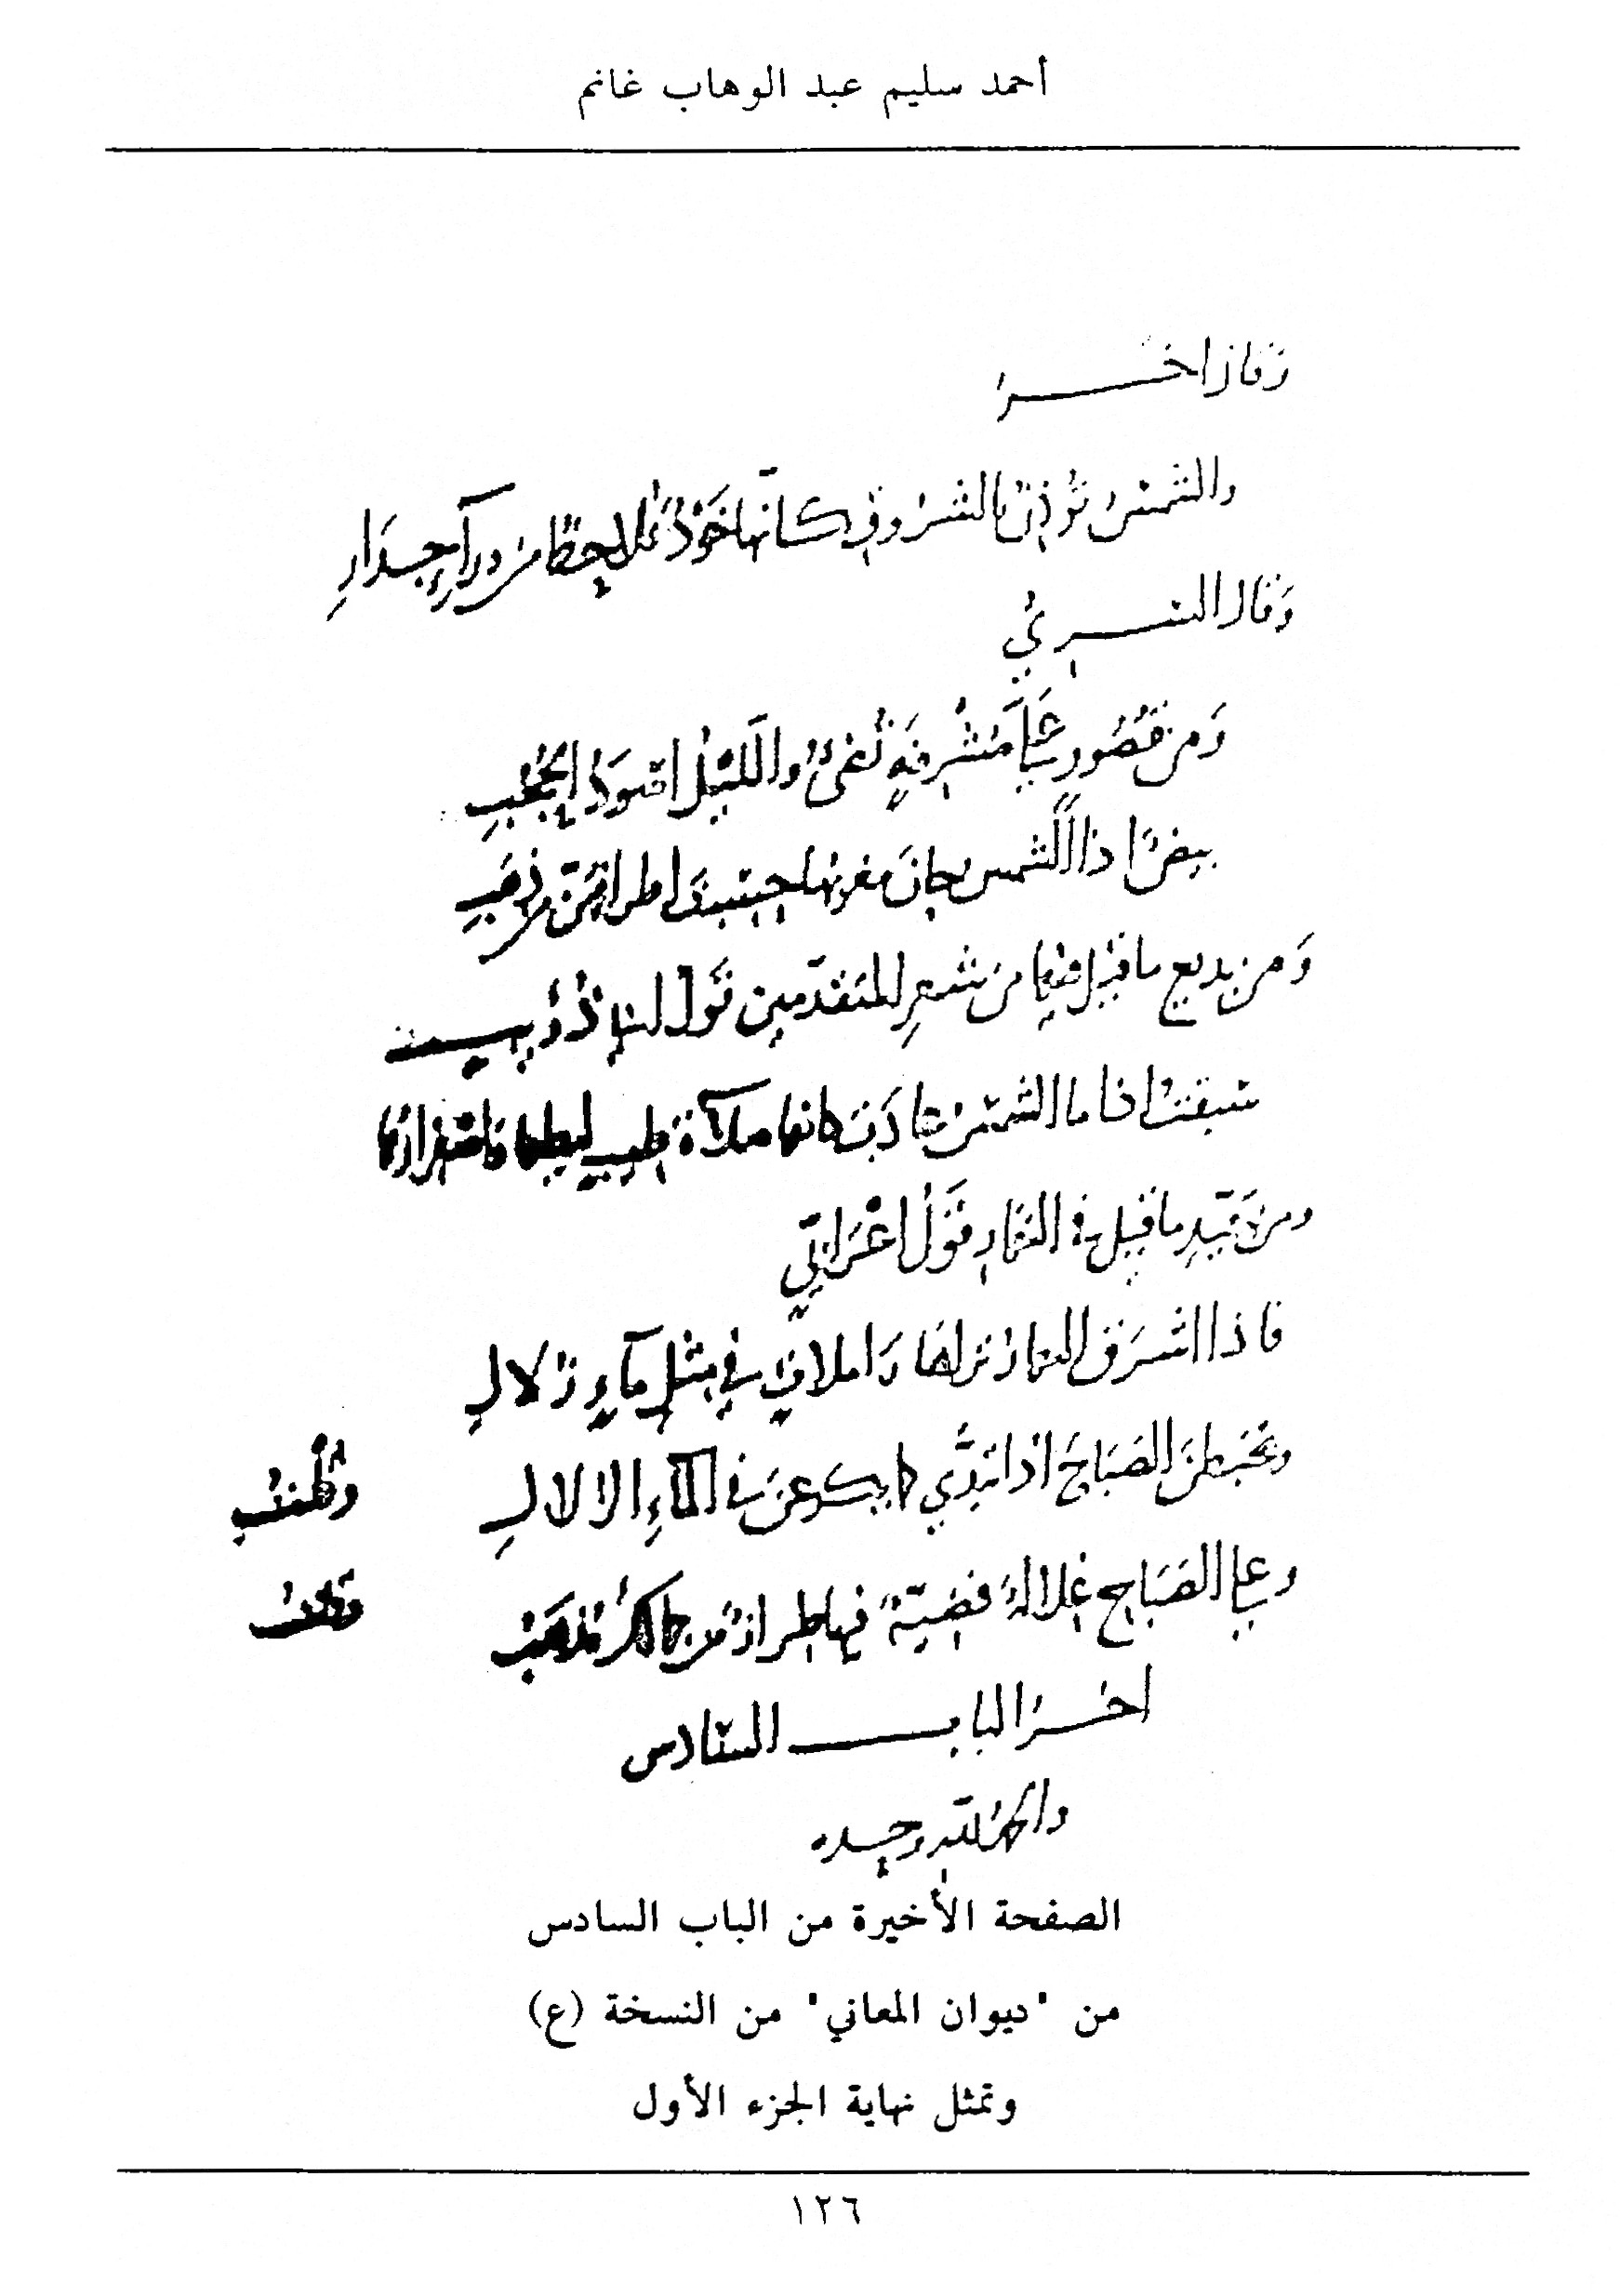 أحمد سليم عبد الوهاب غانم
وقال اخر
والشمس تؤذن بالشروق كأنها خود تلاحظ من وراء جدار
وقال السري
ومن قصور عليا مشرفة تضيء والليل اسود الحجب
بيض اذا الشمس حان مغربها حسبت اطرافهن من ذهب
ومن بديع ما قيل فيها من شعر المتقدمين قول ابي ذؤيب
سبقت اذا ما الشمس عادت كانها صلاءة طيب ليطها واصفرارها
ومن جيد ما قيل في النهار قول اعرابي
فاذا اشرق النهار في مثل ماء زلال
الصباح اذا تبدى كما يكرعن في الماء الزلال
وقلت
وعلى الصباح غلالة فضية فيها طراز من مذهب
وقلت
اخر الباب السادس
والحمد لله وحده
الصفحة الأخيرة من الباب السادس
من "ديوان المعاني" من النسخة (ع)
وتمثل نهاية الجزء الأول
١٢٦